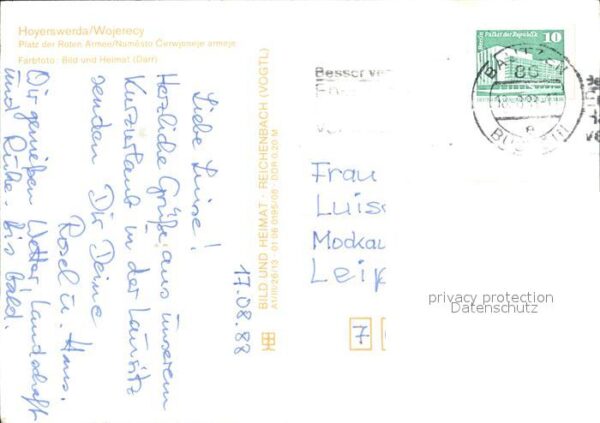 Hoyerswerda/Wojerecy
Platz der Roten Armee/Naměsto Čerwjoneje armeje
Farbfoto: Bild und Heimat (Darr)
Liebe Luise!
Herzliche Grüße aus unserem
Kurzurlaub in der Lausitz
senden Dir Deine
Rosel u. Hans.
Wir genießen Wetter Landschaft
und Ruhe. Bis bald.
17.08.88
BILD UND HEIMAT · REICHENBACH (VOGTL)
A1/III/26/13 01 06 0195/06 DDR 0,20 M
Berlin Palast der Republik
10
BAUTZEN
86
BUDYŠIN
Besser
Frau
Luis
Mockau
Leip
7.
privacy protection
Datenschutz